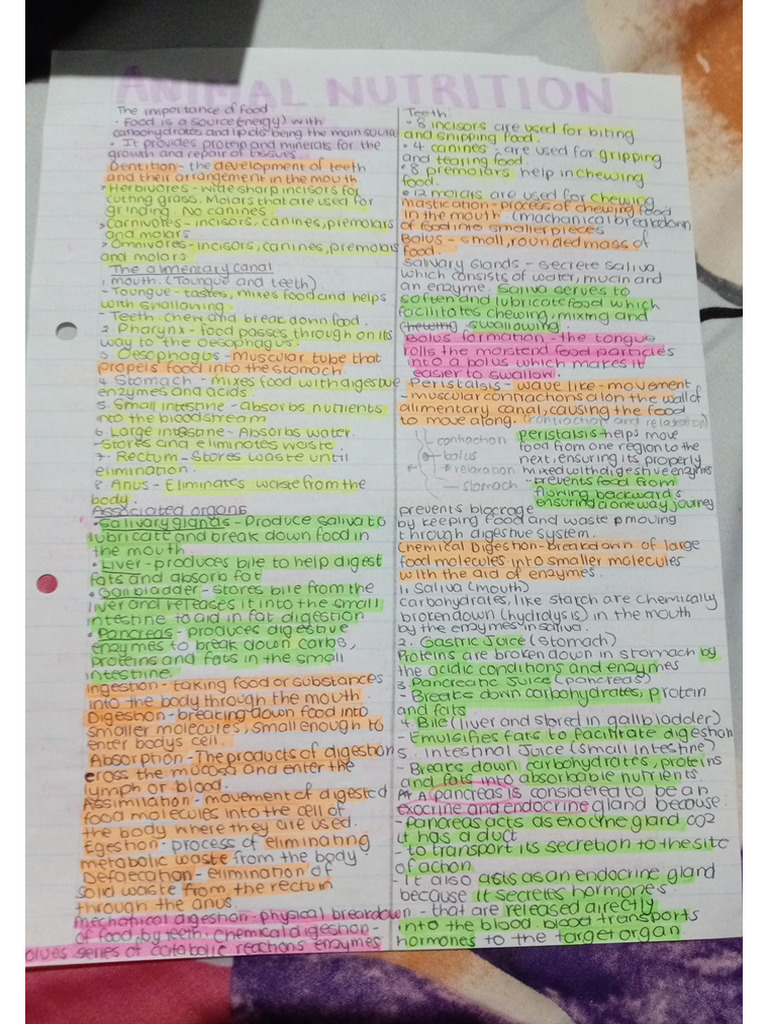 ANIMAL NUTRITION
The importance of food
• Food is a source(energy) with
carbohydrates and lipids being the main source
• It provides protein and minerals for the
growth and repair of tissues.
Dentition - the development of teeth
and their arrangement in the mouth
> Herbivores - wide sharp incisors for
cutting grass. Molars that are used for
grinding. No canines.
> Carnivores - incisors, canines, premolars
and molars
> Omnivores - incisors, canines, premolars
and molars
The alimentary canal
1. mouth. (Toungue and teeth)
- Toungue - tastes, mixes food and helps
with swallowing.
- Teeth. Chew and break down food.
2. Pharynx - food passes through on its
way to the oesophagus.
3. Oesophagus - Muscular tube that
propels food into the stomach
4. Stomach - mixes food with digestive
enzymes and acids.
5. Small intestine - absorbs nutrients
into the bloodstream.
6. Large intestine - Absorbs water.
- Stores and eliminates waste.
7. Rectum - Stores waste until
elimination.
8. Anus - Eliminates waste from the
body.
Associated organs
• Salivary glands - Produce saliva to
lubricate and break down food in
the mouth.
• Liver - produces bile to help digest
fats and absorb fat
• Gall bladder - stores bile from the
liver and releases it into the small
intestine to aid in fat digestion
• Pancreas - produces digestive
enzymes to break down carbs,
proteins and fats in the small
intestine.
Ingestion - taking food or substances
into the body through the mouth.
Digestion - breaking down food into
smaller molecules, small enough to
enter bodys cell.
Absorption - The products of digestion
cross the mucosa and enter the
lymph or blood.
Assimilation - movement of digested
food molecules into the cell of
the body where they are used.
Egestion - process of eliminating
metabolic waste from the body.
Defaecation - elimination of
solid waste from the rectum
through the anus.
Mechanical digestion - physical breakdown
of food, by teeth. Chemical digestion -
olves series of catabolic reactions enzymes
Teeth.
• 8 incisors are used for biting
and snipping food.
• 4 canines; are used for gripping
and tearing food.
• 8 premolars help in chewing
food.
• 12 molars are used for chewing
mastication - process of chewing food
in the mouth (machanical breakdown
of food into smaller pieces
Bolus - small, rounded mass of
food.
Salivary Glands - secrete saliva
which consists of water, mucin and
an enzyme. Saliva serves to
soften and lubricate food which
facilitates chewing, mixing and
chewing swallowing.
Bolus formation - the tongue
rolls the moistend food particles
into a bolus which makes it
easier to swallow.
Peristalsis - wave like - movement
- muscular contrachons alon the wall of
alimentary canal, causing the food
to move along. (contraction and relaxation)
contrachon
bolus
relaxation
stomach
peristalsis helps move
food from one region to the
next, ensuring its properly
mixed with digestive enzymes
- prevents food from
flowing backwards
ensuring a one way journey
prevents blockage
by keeping food and waste pmoving
through digestive system.
Chemical Digestion - breakdown of large
food molecules into smaller molecules
with the aid of enzymes.
1. Saliva (mouth)
carbohydrates, like starch are chemically
broken down (hydrolysis) in the mouth
by the enzymes in saliva.
2. Gastric Juice (Stomach)
Proteins are broken down in stomach by
the acidic conditions and enzymes
3. Pancreatic Juice (pancreas)
- Breaks down carbohydrates, protein
and fats
4. Bile (liver and stored in gallbladder)
- Emulsifies fats to facilitate digestion
5. Intestinal Juice (Small intestine)
- Breaks down carbohydrates, proteins
and fats into absorbable nutrients.
A pancreas is considered to be an
exocrine and endocrine gland because:
- Pancreas acts as exocine gland, coz
it has a duct
- to transport its secretion to the site
of action.
- It also acts as an endocrine gland
because it secretes hormones.
- that are released directly
into the blood blood transports
hormones to the target organ.